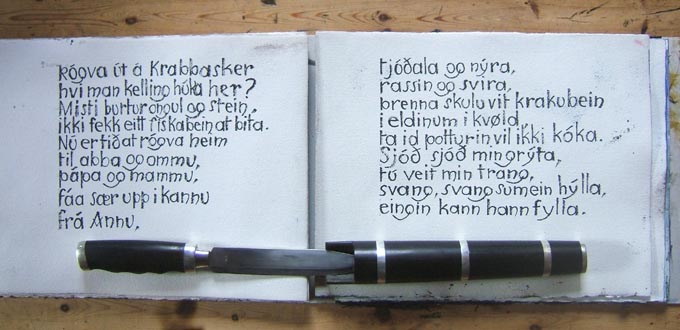 Rógva út á Krabbasker
hví man kelling húka her?
Misti burtur ongul og stein,
ikki fekk eitt fiskabein at bita.
Nú er tíð at rógva heim
til abba og ommu,
pápa og mammu,
fáa sær upp í kannu
frá Annu,
tjóðala og nýra,
rassin og svíra,
brenna skulu vit krakubein
í eldinum í kvøld
tá id potturin vil ikki kóka.
Sjóð sjóð min grýta,
tú veit min trang,
svang, svang sum ein hýlla,
eingin kann hann fylla.